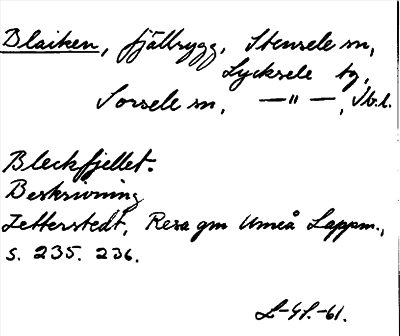 Blaiken, fjällrygg, Stensele sn,
Lycksele tg,
Sorsele sn, —"—, Vb. l.
Bleckfjellet.
Beskrivning
Zetterstedt, Resa gm Umeå Lappm.,
s. 235. 236.
L-61.